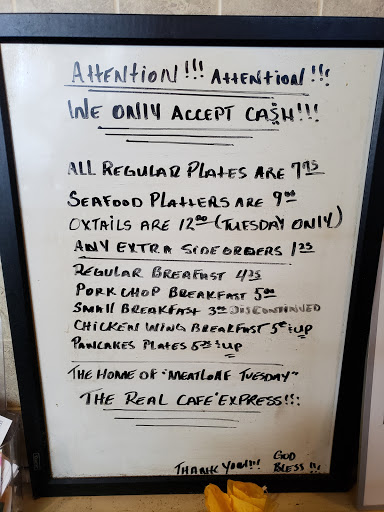 ATTENTION!!! ATTENTION!!!
WE ONLY ACCEPT CA$H!!!
ALL REGULAR PLATES ARE 7 75
SEAFOOD PLATTERS ARE 9 00
OXTAILS ARE 12 00 (TUESDAY ONLY)
ANY EXTRA SIDE ORDERS 1 25
REGULAR BREAFAST 4 25
PORK CHOP BREAKFAST 5 00
SMALL BREAKFAST 3 00 DISCONTINUED
CHICKEN WING BREAKFAST 5 00 & UP
PANCAKES PLATES 5 25 & UP
THE HOME OF "MEATLOAF TUESDAY"
THE REAL CAFE' EXPRESS!!!
THANK YOU!!! GOD BLESS!!!